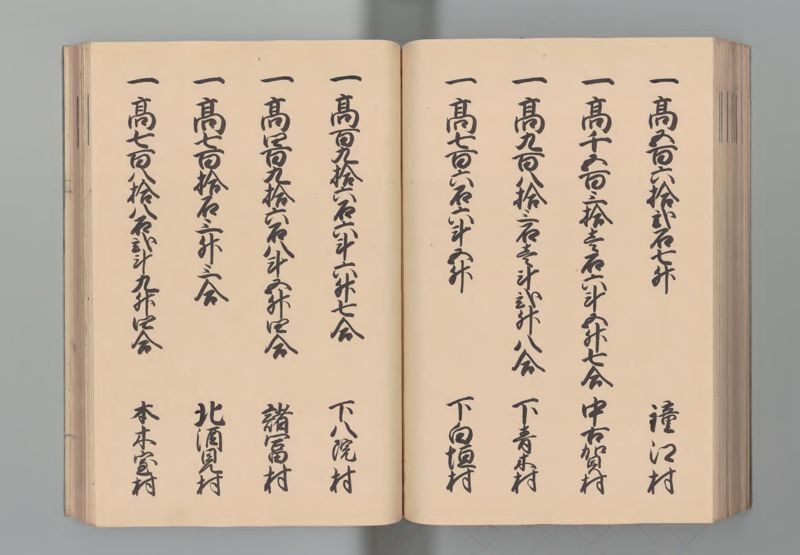 一高五百六拾弐石七升 鐘江村
一高千五百三拾壱石六斗五升七合 中古賀村
一高九百八拾三石壱斗弐升八合 下青木村
一高七百六石六斗五升 下白垣村
一高百九拾六石六斗六升七合 下八院村
一高四百九拾六石八斗五升四合 諸冨村
一高七百拾石三升三合 北酒見村
一高七百八拾八石弐斗九升四合 本木室村